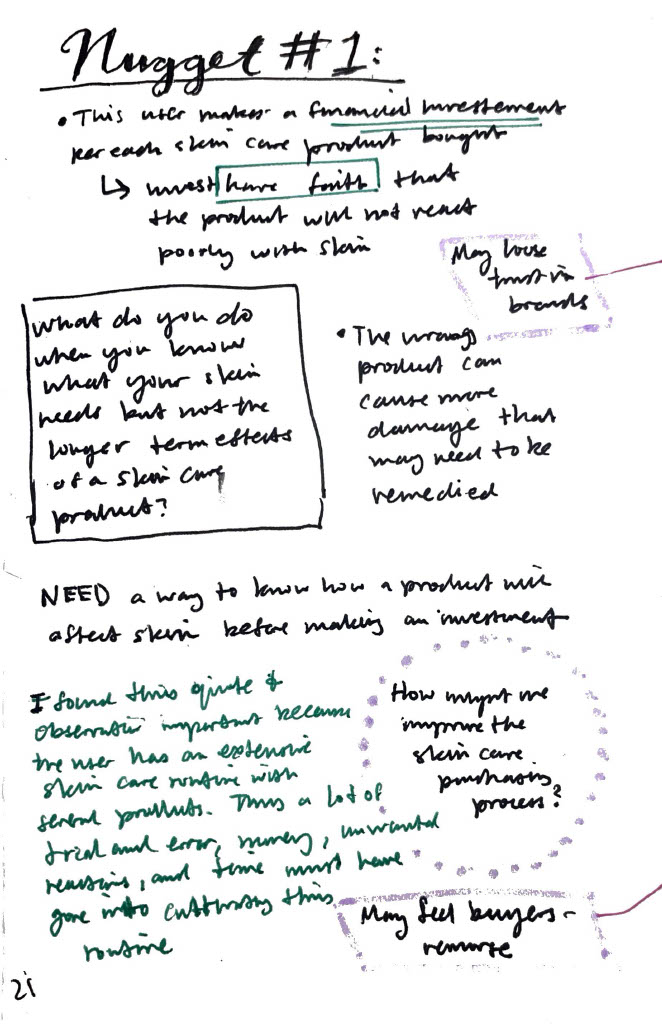 Nugget #1:
• This user makes a financial investement
per each skin care product bought
↳ must have faith that
the product will not react
poorly with skin
May loose
trust in
brands
What do you do
when you know
what your skin
needs but not the
longer term effects
of a skin care
product?
• The wrong
product can
cause more
damage that
may need to be
remedied
NEED a way to know how a product will
affect skin before making an investment
I found this quote &
observation important because
the user has an extensive
skin care routine with
several products. Thus a lot of
trial and error, money, unwanted
reactions, and time must have
gone into this
routine
How might we
improve the
skin care
purchasing
process?
May feel buyers-
remorse
21